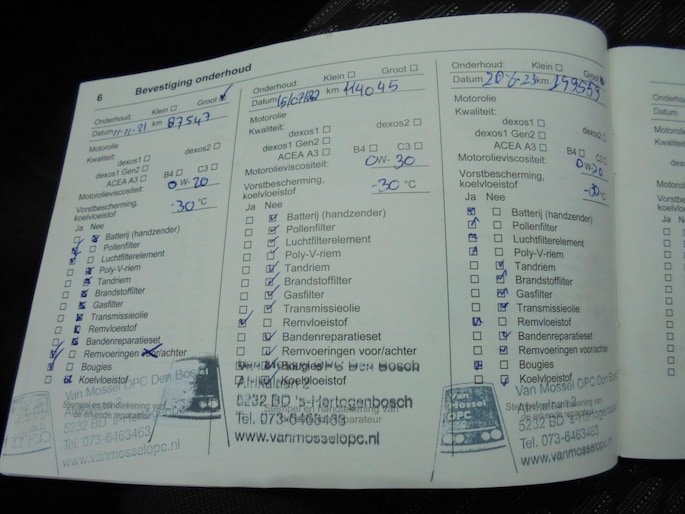 6 Bevestiging onderhoud
Onderhoud: Klein Groot
Datum 11-11-21 km 87547
Motorolie
Kwaliteit:
dexos1 dexos2
dexos1 Gen2
ACEA A3 B4 C3
Motorolieviscositeit: 0W-20
Vorstbescherming,
koelvloeistof -30 °C
Ja Nee
Batterij (handzender)
Pollenfilter
Luchtfilterelement
Poly-V-riem
Tandriem
Brandstoffilter
Gasfilter
Transmissieolie
Remvloeistof
Bandenreparatieset
Remvoeringen voor/achter
Bougies
Koelvloeistof
Van Mossel OPC Den Bosch
5232 BD 's-Hertogenbosch
Tel. 073-6463463
www.vanmosselopc.nl
Onderhoud: Klein Groot
Datum 15/07/22 km 114045
Motorolie
Kwaliteit:
dexos1 dexos2
dexos1 Gen2
ACEA A3 B4 C3
Motorolieviscositeit: 0W-30
Vorstbescherming,
koelvloeistof -30 °C
Ja Nee
Batterij (handzender)
Pollenfilter
Luchtfilterelement
Poly-V-riem
Tandriem
Brandstoffilter
Gasfilter
Transmissieolie
Remvloeistof
Bandenreparatieset
Remvoeringen voor/achter
Bougies
Koelvloeistof
5232 BD 's-Hertogenbosch
Tel. 073-6463463
www.vanmosselopc.nl
Onderhoud: Klein Groot
Datum 20-6-23 km 159559
Motorolie
Kwaliteit:
dexos1 dexos2
dexos1 Gen2
ACEA A3 B4 C3
Motorolieviscositeit: 0W-20
Vorstbescherming,
koelvloeistof -30 °C
Ja Nee
Batterij (handzender)
Pollenfilter
Luchtfilterelement
Poly-V-riem
Tandriem
Brandstoffilter
Gasfilter
Transmissieolie
Remvloeistof
Bandenreparatieset
Remvoeringen voor/achter
Bougies
Koelvloeistof
Van Mossel OPC
Van Mossel OPC Den
5232 BD
Tel. 073-6463463
www.vanmosselopc.nl